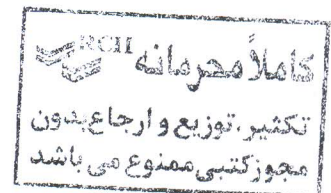 RCII
کاملاً محرمانه
تکثیر، توزیع و ارجاع بدون
مجوز کتبی ممنوع می باشد